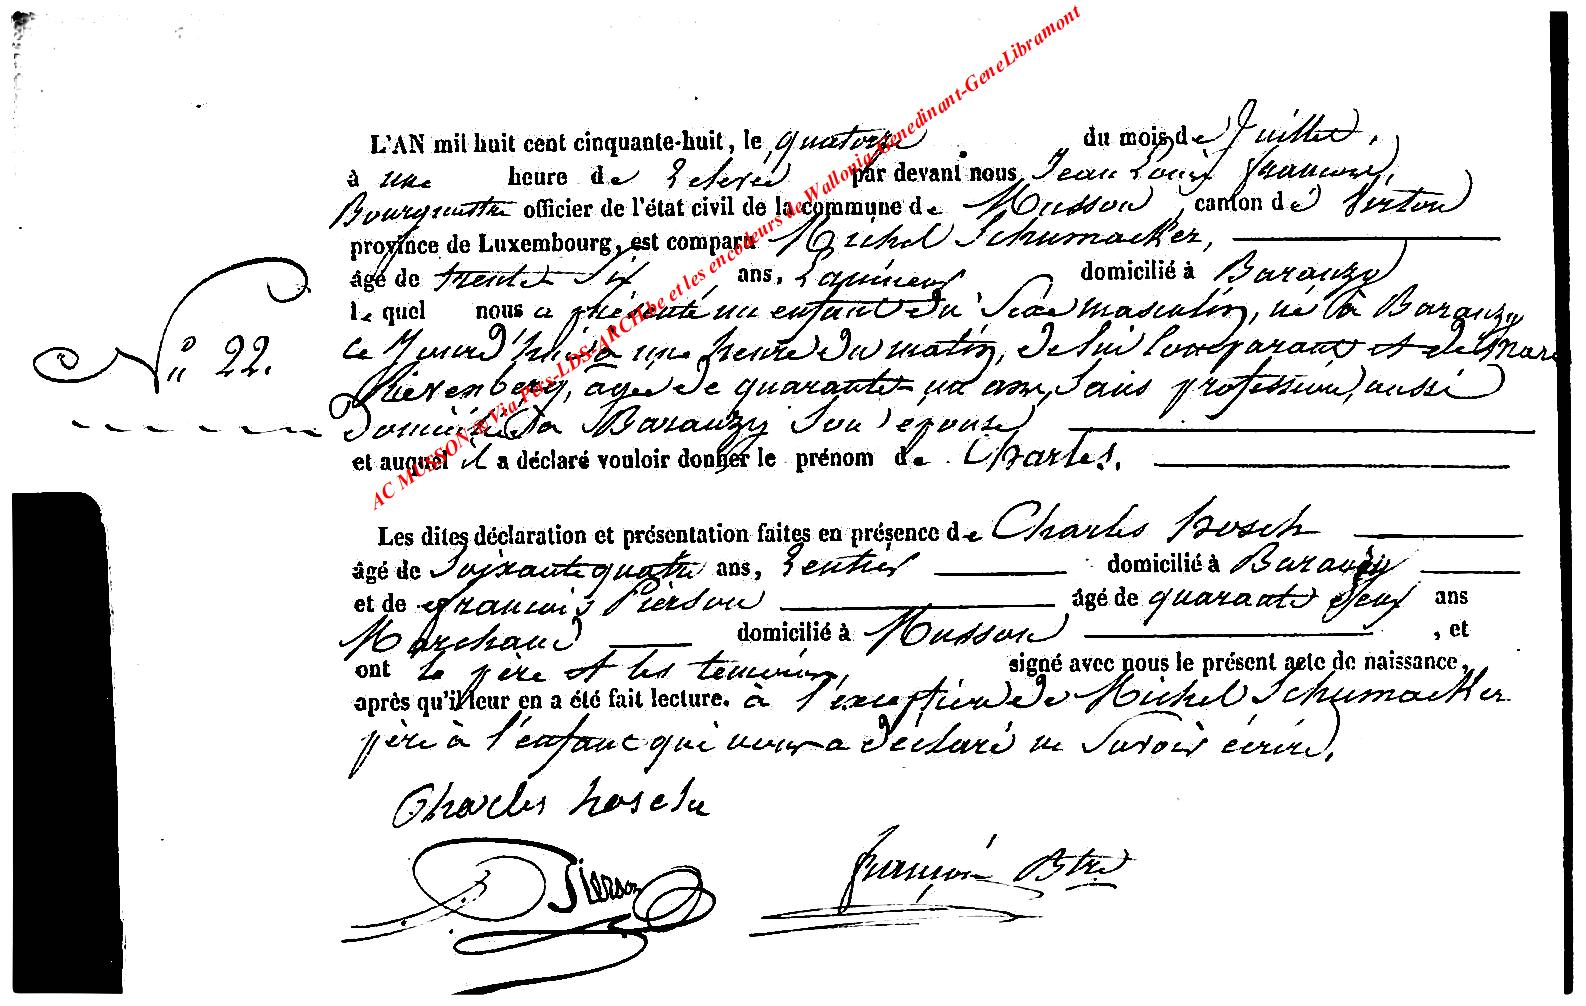 AC MUSSON & Via Pax-LDS-ARCH.be et les encodeurs de Wallonia-Genedinant-GeneLibramont
L'AN mil huit cent cinquante-huit, le quatorze du mois de Juillet.
à une heure de relevée par devant nous Jean Louis François,
Bourgmestre officier de l'état civil de la commune de Musson canton de Virton
province de Luxembourg, est comparu Michel Schumacker,
âgé de trente six ans, domicilié à Baranzy
lequel nous a présenté un enfant du Sexe masculin, né à Baranzy
ce Jourd'hui à une heure du matin, de lui Comparant et de
âgée de quarante un ans, Sans profession, aussi
Domiciliée à Baranzy Son épouse
et auquel il a déclaré vouloir donner le prénom de Charles.
N° 22.
Les dites déclaration et présentation faites en présence de Charles hosch
âgé de Soixante quatre ans, rentier domicilié à Baranzy
et de François Pierson âgé de quarante deux ans
Marchand domicilié à Musson , et
ont le père et les témoins, signé avec nous le présent acte de naissance,
après qu'il leur en a été fait lecture. à l'exception de Michel Schumacker
père à l'enfant qui nous a déclaré ne Savoir écrire.
Charles
Pierson
François Btre